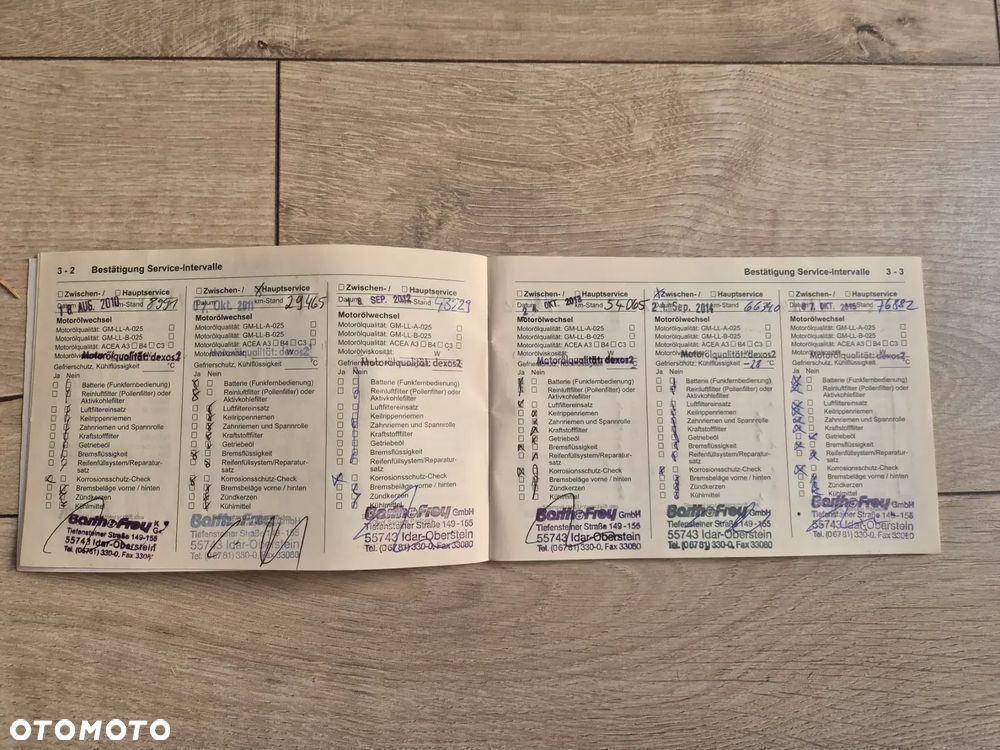 3 - 2 Bestätigung Service-Intervalle
Zwischen- / Hauptservice
18 AUG. 2010 km-Stand
Motorölwechsel
Motorölqualität: GM-LL-A-025
Motorölqualität: GM-LL-B-025
Motorölqualität: ACEA A3 B4 C3
Motorölqualität: dexos2
Gefrierschutz, Kühlflüssigkeit °C
Ja Nein
Batterie (Funkfernbedienung)
Reinluftfilter (Pollenfilter) oder
Aktivkohlefilter
Luftfiltereinsatz
Keilrippenriemen
Zahnriemen und Spannrolle
Kraftstofffilter
Getriebeöl
Bremsflüssigkeit
Reifenfüllsystem/Reparatur-
satz
Korrosionsschutz-Check
Bremsbeläge vorne / hinten
Zündkerzen
Kühlmittel
Barth+Frey
Tiefensteiner Straße 149-155
55743 Idar-Oberstein
Tel. (06781) 330-0, Fax
Zwischen- / Hauptservice
Okt. 2011 km-Stand 29465
Motorölwechsel
Motorölqualität: GM-LL-A-025
Motorölqualität: GM-LL-B-025
Motorölqualität: ACEA A3 B4 C3
Motorölqualität: dexos2
Gefrierschutz, Kühlflüssigkeit °C
Ja Nein
Batterie (Funkfernbedienung)
Reinluftfilter (Pollenfilter) oder
Aktivkohlefilter
Luftfiltereinsatz
Keilrippenriemen
Zahnriemen und Spannrolle
Kraftstofffilter
Getriebeöl
Bremsflüssigkeit
Reifenfüllsystem/Reparatur-
satz
Korrosionsschutz-Check
Bremsbeläge vorne / hinten
Zündkerzen
Kühlmittel
Barth+Frey GmbH
Tiefensteiner Straße 149-155
55743 Idar-Oberstein
Tel. (06781) 330-0, Fax 33080
Zwischen- / Hauptservice
SEP. 2012 km-Stand 43229
Motorölwechsel
Motorölqualität: GM-LL-A-025
Motorölqualität: GM-LL-B-025
Motorölqualität: ACEA A3 B4 C3
Motorölviskosität: W
Motorölqualität: dexos2
Gefrierschutz, Kühlflüssigkeit °C
Ja Nein
Batterie (Funkfernbedienung)
Reinluftfilter (Pollenfilter) oder
Aktivkohlefilter
Luftfiltereinsatz
Keilrippenriemen
Zahnriemen und Spannrolle
Kraftstofffilter
Getriebeöl
Bremsflüssigkeit
Reifenfüllsystem/Reparatur-
satz
Korrosionsschutz-Check
Bremsbeläge vorne / hinten
Zündkerzen
Kühlmittel
Barth+Frey GmbH
Tiefensteiner Straße 149-155
55743 Idar-Oberstein
Tel. (06781) 330-0, Fax 33080
Bestätigung Service-Intervalle 3 - 3
Zwischen- / Hauptservice
OKT. 2013 km-Stand 54065
Motorölwechsel
Motorölqualität: GM-LL-A-025
Motorölqualität: GM-LL-B-025
Motorölqualität: ACEA A3 B4 C3
Motorölviskosität: W
Motorölqualität: dexos2
Gefrierschutz, Kühlflüssigkeit
Ja Nein
Batterie (Funkfernbedienung)
Reinluftfilter (Pollenfilter) oder
Aktivkohlefilter
Luftfiltereinsatz
Keilrippenriemen
Zahnriemen und Spannrolle
Kraftstofffilter
Getriebeöl
Bremsflüssigkeit
Reifenfüllsystem/Reparatur-
satz
Korrosionsschutz-Check
Bremsbeläge vorne / hinten
Zündkerzen
Kühlmittel
Barth+Frey GmbH
Tiefensteiner Straße 149-155
55743 Idar-Oberstein
Tel. (06781) 330-0, Fax 33080
Zwischen- / Hauptservice
24. Sep. 2014 km-Stand 66740
Motorölwechsel
Motorölqualität: GM-LL-A-025
Motorölqualität: GM-LL-B-025
Motorölqualität: ACEA A3 B4 C3
Motorölqualität: dexos2
Gefrierschutz, Kühlflüssigkeit -28 °C
Ja Nein
Batterie (Funkfernbedienung)
Reinluftfilter (Pollenfilter) oder
Aktivkohlefilter
Luftfiltereinsatz
Keilrippenriemen
Zahnriemen und Spannrolle
Kraftstofffilter
Getriebeöl
Bremsflüssigkeit
Reifenfüllsystem/Reparatur-
satz
Korrosionsschutz-Check
Bremsbeläge vorne / hinten
Zündkerzen
Kühlmittel
Barth+Frey GmbH
Tiefensteiner Straße 149-155
55743 Idar-Oberstein
Tel. (06781) 330-0, Fax 33080
Zwischen- / Hauptservice
OKT. 2015 km-Stand 76882
Motorölwechsel
Motorölqualität: GM-LL-A-025
Motorölqualität: GM-LL-B-025
Motorölqualität: ACEA A3 B4 C3
Motorölqualität: dexos2
Gefrierschutz, Kühlflüssigkeit °C
Ja Nein
Batterie (Funkfernbedienung)
Reinluftfilter (Pollenfilter) oder
Aktivkohlefilter
Luftfiltereinsatz
Keilrippenriemen
Zahnriemen und Spannrolle
Kraftstofffilter
Getriebeöl
Bremsflüssigkeit
Reifenfüllsystem/Reparatur-
satz
Korrosionsschutz-Check
Bremsbeläge vorne / hinten
Zündkerzen
Kühlmittel
Barth+Frey GmbH
Tiefensteiner Straße 149-155
55743 Idar-Oberstein
Tel. (06781) 330-0, Fax 33080
OTOMOTO